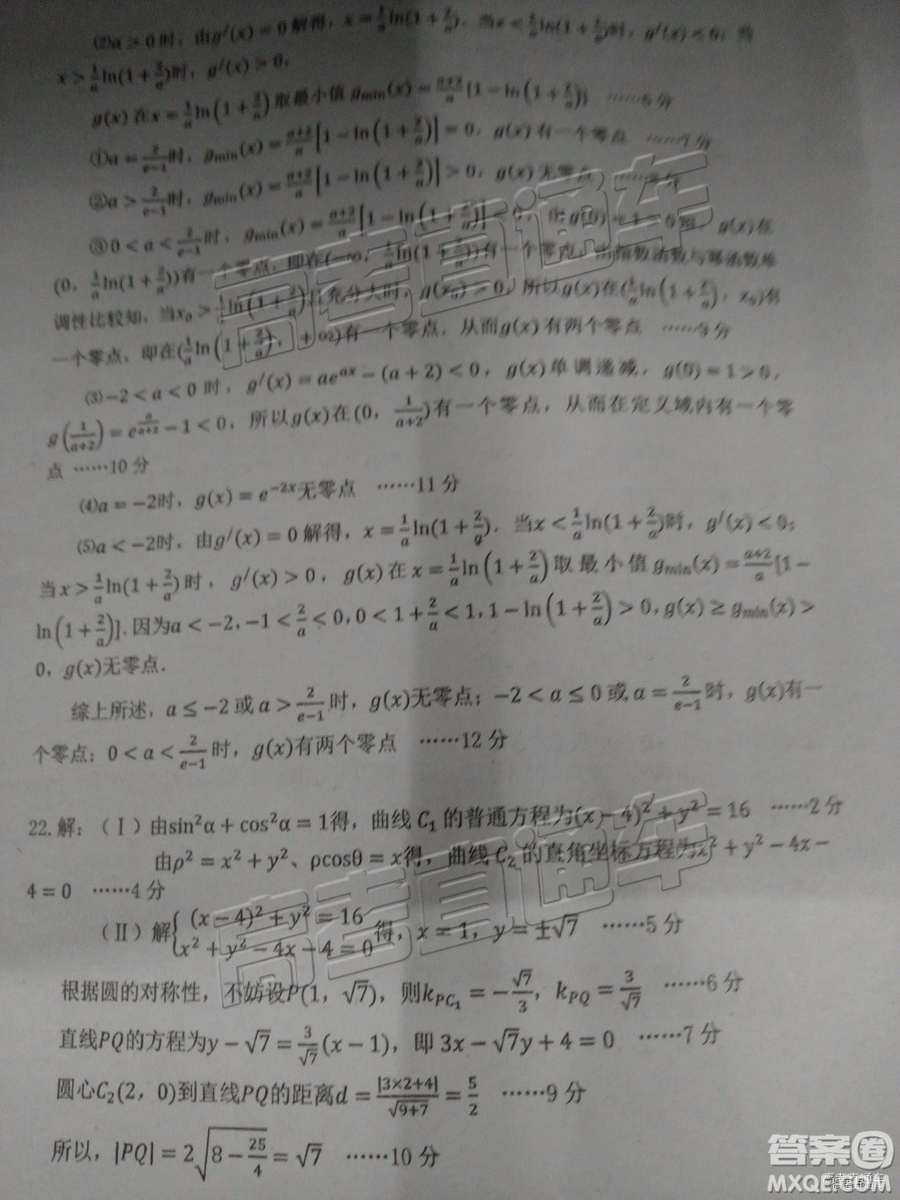 ⑵a > 0 时，由g′(x) = 0 解得，x = 1/a ln(1 + 2/a)．当x < 1/a ln(1 + 2/a)时，g′(x) < 0；当
x > 1/a ln(1 + 2/a)时，g′(x) > 0，
g(x) 在x = 1/a ln(1 + 2/a) 取最小值 g_min(x) = (a+2)/a [1 − ln(1 + 2/a)] ……6 分
①a = 2/(e−1)时，g_min(x) = (a+2)/a [1 − ln(1 + 2/a)] = 0，g(x) 有一个零点 ……7 分
②a > 2/(e−1)时，g_min(x) = (a+2)/a [1 − ln(1 + 2/a)] > 0，g(x) 无零点
③0 < a < 2/(e−1) 时，g_min(x) = (a+2)/a [1 − ln(1 + 2/a)] < 0， g(0) = 1 > 0 g(x) 在
(0，1/a ln(1 + 2/a))有一个零点，即在(−∞，1/a ln(1 + 2/a))有一个零点，由指数函数与幂函数单
调性比较知，当x₀ > 1/a ln(1 + 2/a)且充分大时，g(x₀) > 0，所以g(x)在(1/a ln(1 + 2/a)，x₀)有
一个零点，即在(1/a ln(1 + 2/a)，+∞)有一个零点．从而g(x) 有两个零点 ……9 分
⑶−2 < a < 0 时，g′(x) = ae^(ax) − (a + 2) < 0，g(x) 单调递减，g(0) = 1 > 0，
g(1/(a+2)) = e^(a/(a+2)) − 1 < 0，所以g(x)在(0，1/(a+2))有一个零点，从而在定义域内有一个零
点 ……10 分
⑷a = −2时，g(x) = e^(−2x)无零点 ……11 分
⑸a < −2时，由g′(x) = 0 解得，x = 1/a ln(1 + 2/a)．当x < 1/a ln(1 + 2/a)时，g′(x) < 0；
当x > 1/a ln(1 + 2/a) 时，g′(x) > 0，g(x) 在 x = 1/a ln(1 + 2/a) 取最小值 g_min(x) = (a+2)/a [1 −
ln(1 + 2/a)]．因为a < −2，−1 < 2/a < 0，0 < 1 + 2/a < 1，1 − ln(1 + 2/a) > 0，g(x) ≥ g_min(x) >
0，g(x)无零点．
综上所述，a ≤ −2 或a > 2/(e−1) 时，g(x)无零点；−2 < a ≤ 0 或 a = 2/(e−1) 时，g(x)有一
个零点；0 < a < 2/(e−1) 时，g(x)有两个零点 ……12 分
22.解：（Ⅰ）由sin²α + cos²α = 1得，曲线 C₁ 的普通方程为(x − 4)² + y² = 16 ……2 分
由ρ² = x² + y²、ρcosθ = x得，曲线 C₂ 的直角坐标方程为x² + y² − 4x −
4 = 0 ……4 分
（Ⅱ）解{(x − 4)² + y² = 16
x² + y² − 4x − 4 = 0得，x = 1，y = ±√7 ……5 分
根据圆的对称性，不妨设P(1，√7)，则k_PC₁ = −√7/3，k_PQ = 3/√7 ……6 分
直线PQ的方程为y − √7 = 3/√7 (x − 1)，即 3x − √7y + 4 = 0 ……7 分
圆心C₂(2，0)到直线PQ的距离d = |3×2+4|/√(9+7) = 5/2 ……9 分
所以，|PQ| = 2√(8 − 25/4) = √7 ……10 分
高考直通车
高考直通车
答案圈
MXQE.COM